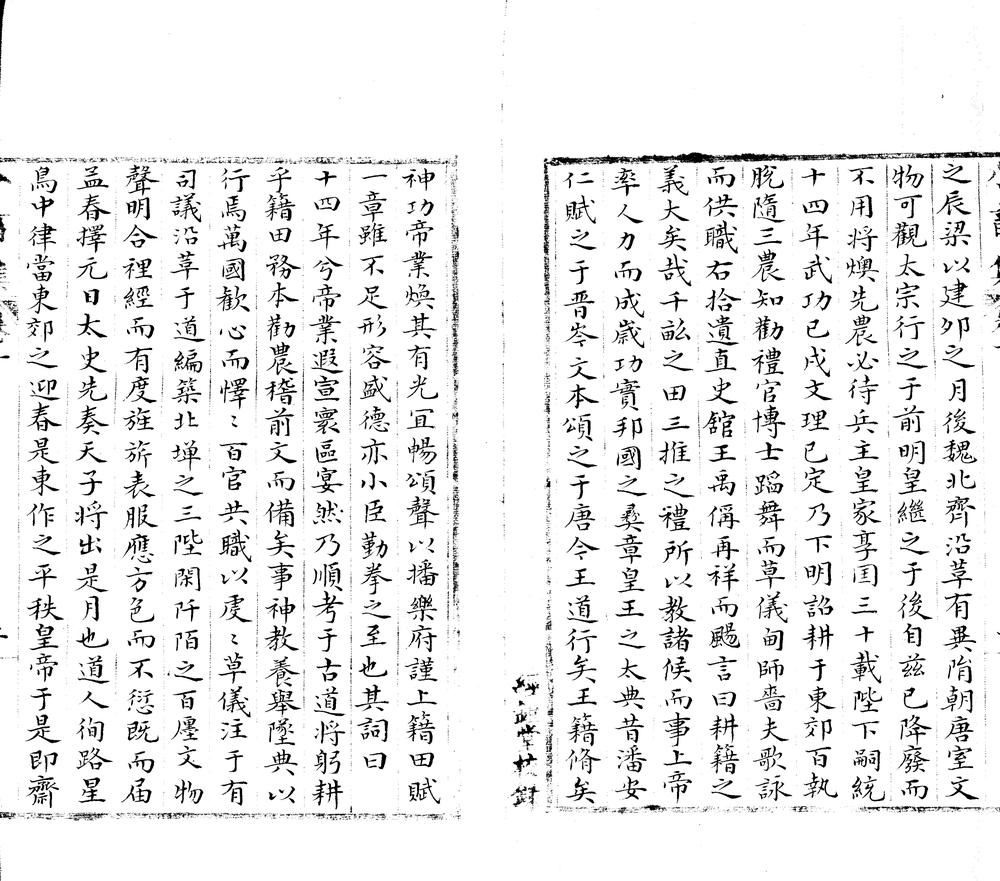 之辰梁以建夘之月後魏北齊沿革有異隋朝唐室文
物可觀太宗行之于前明皇繼之于後自兹已降廢而
不用将燠先農必待兵主皇家享囯三十載陛下嗣統
十四年武功已成文理已定乃下明詔耕于東郊百執
脫隨三農知勸禮官博士蹈舞而草儀甸師嗇夫歌詠
而供職右拾遺直史舘王禹偁再祥而颺言曰耕籍之
義大矣哉千畝之田三推之禮所以教諸候而事上帝
率人力而成歲功實邦國之彝章皇王之大典昔潘安
仁賦之于晋岑文本頌之于唐今王道行矣王籍脩矣
神功帝業煥其有光宜暢頌聲以播樂府謹上籍田賦
一章雖不足形容盛德亦小臣勤拳之至也其詞曰
十四年兮帝業遐宣寰區宴然乃順考于古道将躬耕
乎籍田務本勸農稽前文而備矣事神教養舉墜典以
行焉萬國歓心而懌〻百官共職以虔〻草儀注于有
司議沿革于道編築北墠之三陛閑阡陌之百廛文物
聲明合禋經而有度旌旂表服應方色而不愆既而届
孟春擇元日太史先奏天子将出是月也道人徇路星
鳥中律當東郊之迎春是東作之平秩皇帝于是即齋